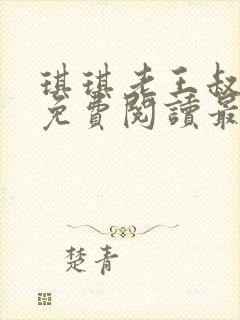 琪琪老王叔
免費閱讀最
楚青